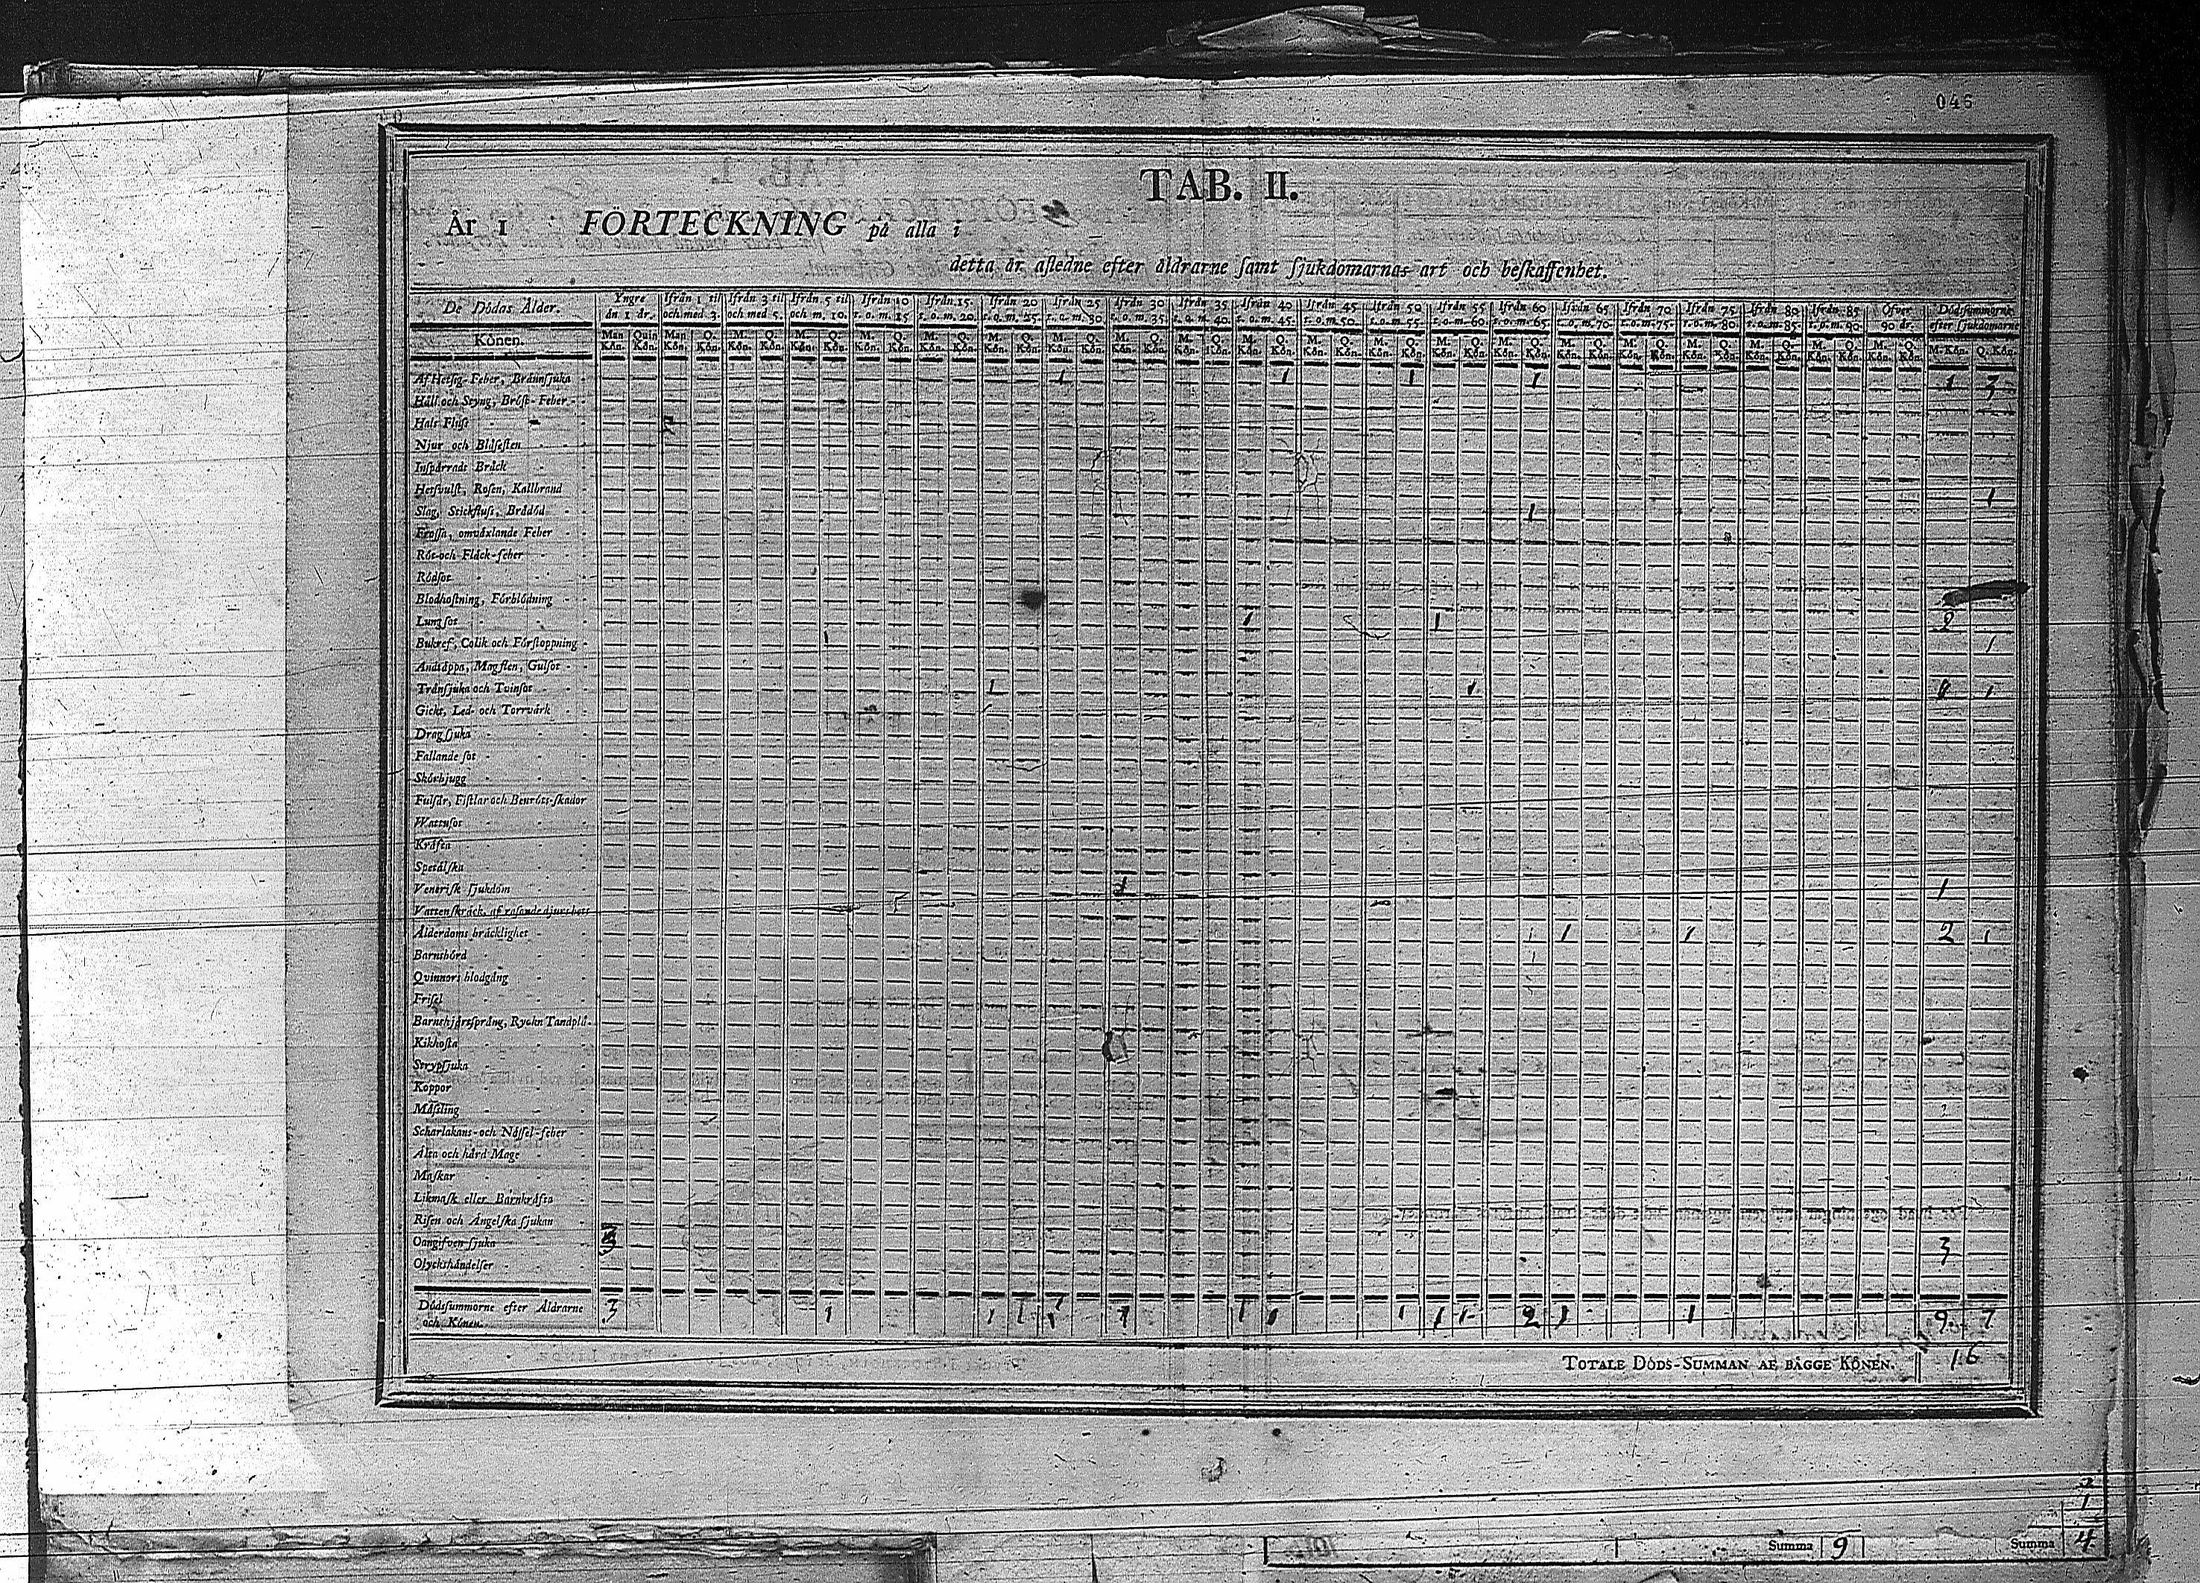 046
TAB. II.
År 1 FÖRTECKNING på alla i
detta år afledne efter åldrarne samt sjukdomarnas art och beskaffenhet.
De Dödas Ålder. Yngre än 1 år. Ifrån 1 til och med 3. Ifrån 3 til och med 5. Ifrån 5 til och m. 10. Ifrån 10 t. o. m. 15 Ifrån 15. t. o. m. 20. Ifrån 20 t. o. m. 25. Ifrån 25 t. o. m. 30 Ifrån 30 t. o. m. 35 Ifrån 35 t. o. m. 40. Ifrån 40 t. o. m. 45. Ifrån 45 t. o. m. 50. Ifrån 50 t. o. m. 55. Ifrån 55 t. o. m. 60. Ifrån 60 t. o. m. 65. Ifrån 65 t. o. m. 70. Ifrån 70 t. o. m. 75. Ifrån 75 t. o. m. 80 Ifrån 80 t. o. m. 85. Ifrån 85 t. o. m. 90. Öfver 90 år. Dödssummorne efter sjukdomarne
Könen. Man Kön. Quin Kön. Man Kön. Q. Kön. M. Kön. Q. Kön. M. Kön. Q. Kön. M. Kön. Q. Kön. M. Kön. Q. Kön. M. Kön. Q. Kön. M. Kön. Q. Kön. M. Kön. Q. Kön. M. Kön. Q. Kön. M. Kön. Q. Kön. M. Kön. Q. Kön. M. Kön. Q. Kön. M. Kön. Q. Kön. M. Kön. Q. Kön. M. Kön. Q. Kön. M. Kön. Q. Kön. M. Kön. Q. Kön. M. Kön. Q. Kön. M. Kön. Q. Kön. M. Kön. Q. Kön. M. Kön. Q. Kön.
Af Hetsig-Feber, Brännsjuka 1 1 1 1 1 3
Håll och Styng, Bröst-Feber
Hals Fluss
Njur och Blåsesten
Inspärrads Bråck
Hetsvulst, Rosen, Kallbrand
Slag, Stickfluss, Brådöd 1 1
Frossa, omväxlande Feber
Röt-och Fläck-feber
Rödsot
Blodhostning, Förblödning
Lungsot 1 1 2
Bukref, Colik och Förstoppning 1 1
Andtäppa, Magsten, Gulsot
Trånsjuka och Tvinsot 1 1 1
Gickt, Led- och Torrvärk
Dragsjuka
Fallande sot
Skörbjugg
Fulsår, Fistlar och Benröts-skador
Wattusot
Kräfta
Spetälska
Venerisk sjukdom 1 1
Vattenskräck, af rasande djurs bett
Ålderdoms bräcklighet 1 1 1 2 1
Barnsbörd
Qvinnors blodgång
Frisel
Barnehjärtsprång, Ryckn Tandplå.
Kikhosta
Strypsjuka
Koppor
Mässling
Scharlakans-och Nässel-feber
Älta och hård Mage
Maskar
Likmask eller Barnkräfta
Risen och Ängelska sjukan
Oangifven sjuka 3 3
Olyckshändelser
Dödssummorne efter Åldrarne och Könen. 3 1 1 1 1 1 1 1 1 1 1 2 1 1 9 7
TOTALE DÖDS-SUMMAN AF BÄGGE KÖNEN. 16
2
1
Summa 9 Summa 4